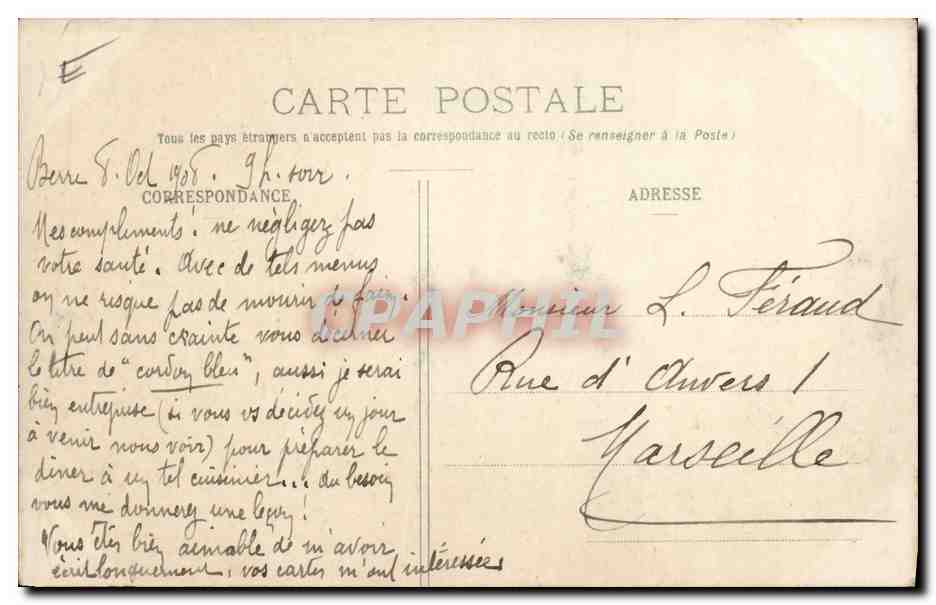 E
CARTE POSTALE
Tous les pays étrangers n'acceptent pas la correspondance au recto (Se renseigner à la Poste)
Berre 8. Oct 1908. 9h. soir.
CORRESPONDANCE
Mes compliments! ne négligez pas
votre santé. Avec de tels menus
on ne risque pas de mourir de faim.
On peut sans crainte vous décerner
le titre de "cordon bleu", aussi je serai
bien entreprise (si vous vs décidez un jour
à venir nous voir) pour préparer le
diner à un tel cuisinier... au besoin
vous me donnerez une leçon!
Vous êtes bien aimable de m'avoir
écrit longuement, vos cartes m'ont intéressée
ADRESSE
Monsieur L. Féraud
Rue d'Anvers 1
Marseille
CPAPHIL